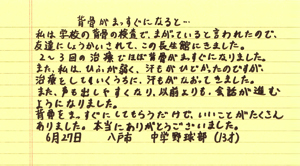 背骨がまっすぐになると…
私は学校の背骨の検査で、まがっていると言われたので、
友達にしょうかいされて、この長生館にきました。
2~3回の治療でほぼ背骨がまっすぐになりました。
また、私は、ひふが弱く、汗もがひどかったのですが、
治療をしてもらくうちに、汗もがなおってきました。
また、声も出しやすくなり、以前よりも、会話が進む
ようになりました。
背骨をまっすぐにしてもらうだけで、いいことがたくさん
ありました。本当にありがとうございました。
6月27日 八戸市 中学野球部(13才)